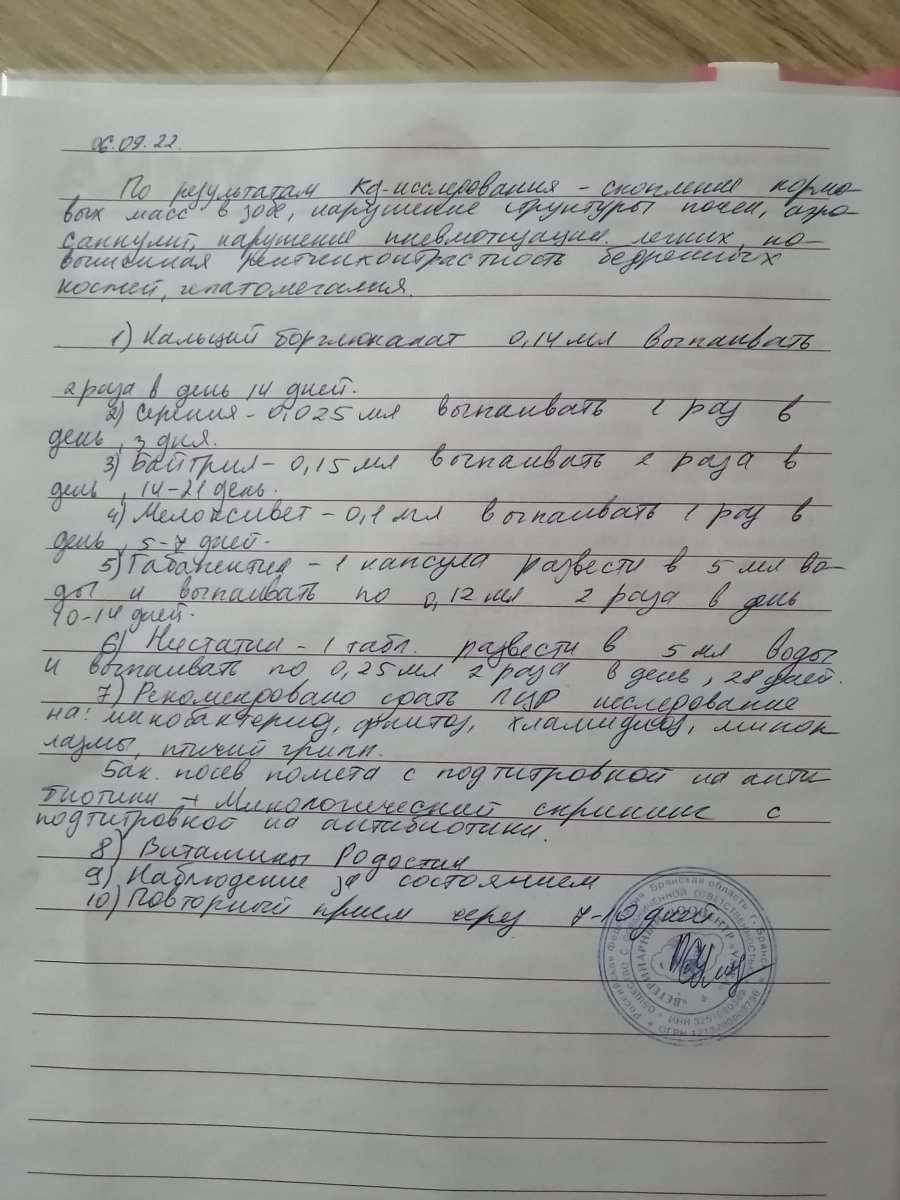 06.09.22.
По результатам Rg-исследования - скопление кормо-
вых масс в зобе, нарушение структуры почек, аэро-
саккулит, нарушение пневмотизации легких, по-
вышенная рентгенконтрастность бедренных
костей, гепатомегалия.
1) Кальций борглюканат 0,14 мл выпаивать
2 раза в день 14 дней.
2) Серения - 0,025 мл выпаивать 1 раз в
день, 3 дня.
3) Байтрил - 0,15 мл выпаивать 2 раза в
день, 14-21 день.
4) Мелоксивет - 0,1 мл выпаивать 1 раз в
день, 5-7 дней.
5) Габапентин - 1 капсула развести в 5 мл во-
ды и выпаивать по 0,12 мл 2 раза в день
10-14 дней.
6) Нистатин - 1 табл. развести в 5 мл воды
и выпаивать по 0,25 мл 2 раза в день, 28 дней.
7) Рекомендровано сдать ПЦР исследование
на: микобактериоз, орнитоз, хламидиоз, микоп-
лазмы, птичий грипп.
Бак. посев помета с подтитровкой на анти
биотики + Микологический скрининг с
подтитровкой на антибиотики.
8) Витамины Родостин
9) Наблюдение за состоянием
10) Повторный прием через 7-10 дней
Российская Федерация Брянская область г. Брянск
ОБЩЕСТВО С ОГРАНИЧЕННОЙ ОТВЕТСТВЕННОСТЬЮ
"ВЕТЕРИНАРНЫЙ ЦЕНТР
ИНН
ОГРН